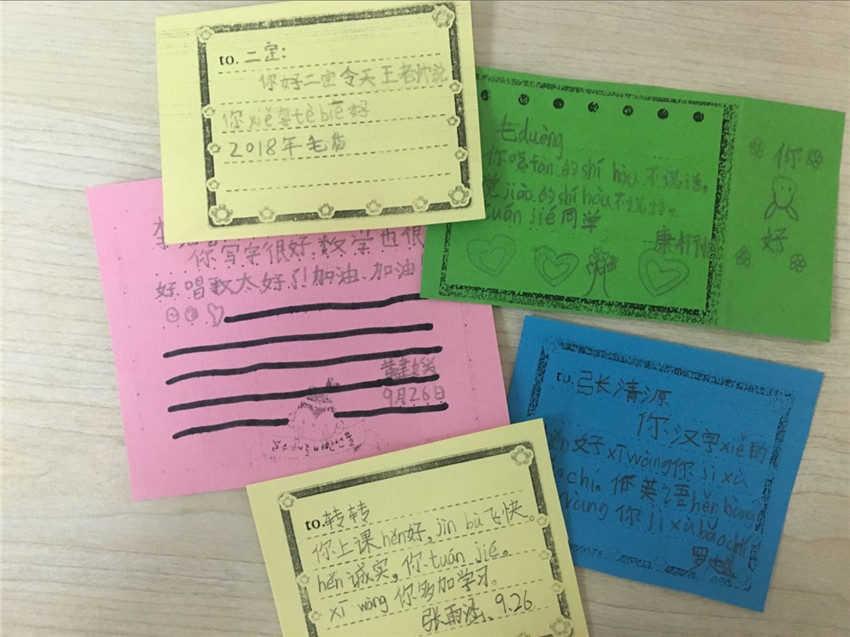 to. 二定:
你好二定今天王老师说
你xiě字tè biē好
2018年毛
毛duèng
你吃fàn的shí hòu不说话,
jiào的shí hòu不说话。
tuán jié同学
康
你
好
你写字很好数学也很
好唱歌太好了!加油、加油
9月26日
to. 张清源
你汉字xiě的
好xī wàng你jì xù
chí。你英语hěn bàng
wàng你jì xù bǎo chí
罗
to. 转转
你上课hěn好,jìn bù飞快。
hěn诚实,你tuán jié。
xī wàng你多加学习。
张雨 9.26